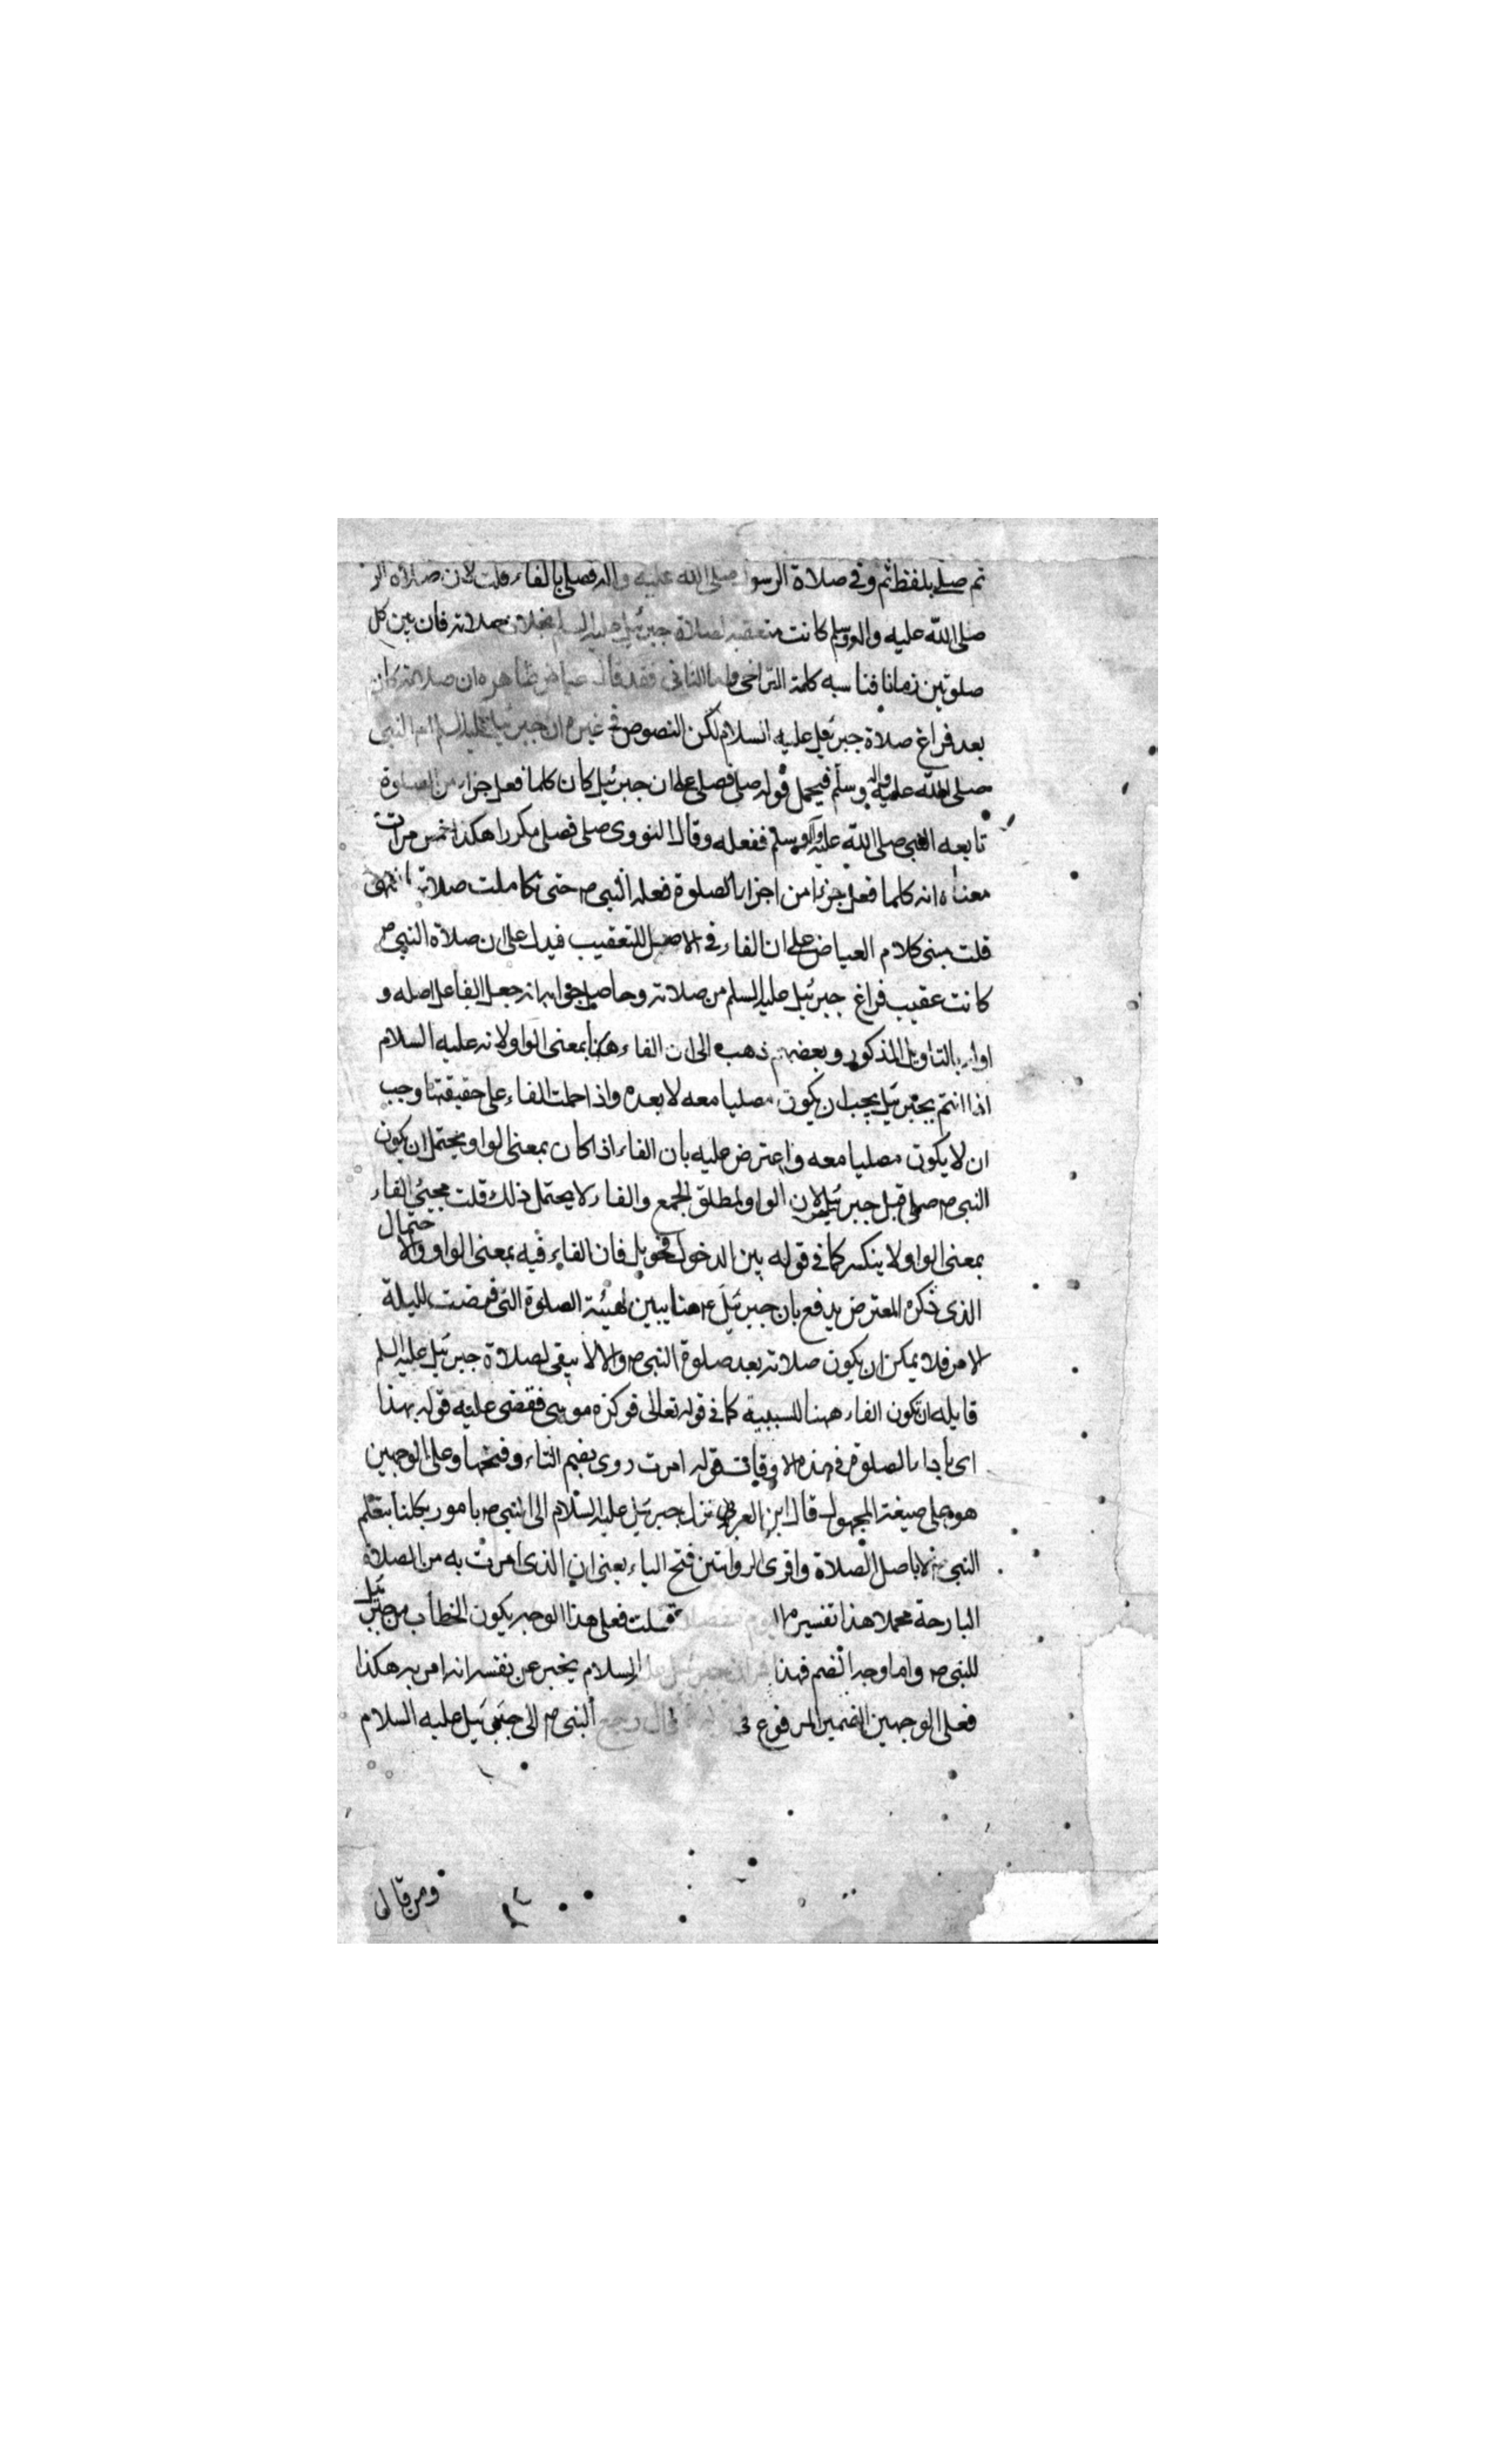 ثم صلى بلفظ ثم وفي صلاة الرسول صلى الله عليه واله فصلى بالفاء قلت لان صلاة الر
صلى الله عليه واله وسلم كانت متعقبة لصلاة جبرئيل عليه السلم بخلاف صلاته فان بين كل
صلوتين زمانا فناسبه كلمة التراخى واما الثانى فقد قال عياض ظاهره ان صلاته كان
بعد فراغ صلاة جبرئيل عليه السلام لكن النصوص في غيره ان جبرئيل عليه السلم ام النبى
صلى الله عليه واله وسلم فيحمل قوله صلى فصلى على ان جبرئيل كان كلما فعل جزء من الصلوة
تابعه النبى صلى الله عليه واله وسلم ففعله وقال النووى صلى فصلى مكررا هكذا خمس مرات
معناه انه كلما فعل جزءا من اجزاء الصلوة فعله النبى ص حتى تكاملت صلاته انتهى
قلت مبنى كلام العياض على ان الفاء في الاصل للتعقيب فيدل على ان صلاة النبى ص
كانت عقيب فراغ جبرئيل عليه السلم من صلاته وحاصل جوابه انه جعل الفا على اصله و
اوله بالتاويل المذكور وبعضهم ذهب الى ان الفاء هنا بمعنى الواو لانه عليه السلام
اذا ائتم بجبرئيل يجب ان يكون مصليا معه لا بعده واذا حملت الفاء على حقيقتها وجب
ان لا يكون مصليا معه واعترض عليه بان الفاء اذا كان بمعنى الواو يحتمل ان يكون
النبى ص صلى قبل جبرئيل لان الواو لمطلق الجمع والفاء لا يحتمل ذلك قلت مجيئ الفاء
بمعنى الواو لا ينكر كما في قوله بين الدخول فحومل فان الفاء فيه بمعنى الواو والاحتمال
الذى ذكره المعترض يدفع بان جبرئيل ع هنا يبين لهيئة الصلوة التى فرضت لليلة
الامر فلا يمكن ان يكون صلاته بعد صلوة النبى ص والا لا يبقى لصلاة جبرئيل عليه السلم
فايله ان تكون الفاء ههنا للسببية كما في قوله تعالى فوكزه موسى فقضى عليه قوله بهذا
اى باداء الصلوة في هذه الاوقات قوله امرت روى بضم التاء وفتحها وعلى الوجهين
هو على صيغة المجهول قال ابن العربى نزل جبرئيل عليه السلام الى النبى ص بامور بكلنا بتعلم
النبى ص لا باصل الصلاة واقوى الروايتين فتح التاء يعنى ان الذى امرت به من الصلاة
البارحة مجملا هذا تفسيره اليوم مفصلا قلت فعلى هذا الوجه يكون الخطاب من جبرئيل
للنبى ص واما وجه الضم فهذا ان جبرئيل عليه السلام يخبر عن نفسه انه امر به هكذا
فعلى الوجهين الضمير المرفوع فى قال رجع النبى ص الى جبرئيل عليه السلام
ومن قال